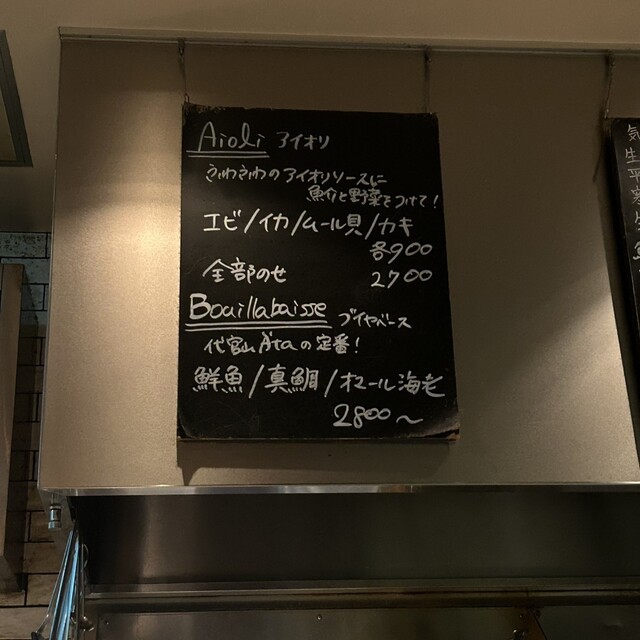 Aioli アイオリ
ふわふわのアイオリソースに
魚介と野菜をつけて!
エビ/イカ/ムール貝/カキ
各900
全部のせ 2700
Bouillabaisse ブイヤベース
代官山Ataの定番!
鮮魚/真鯛/オマール海老
2800〜